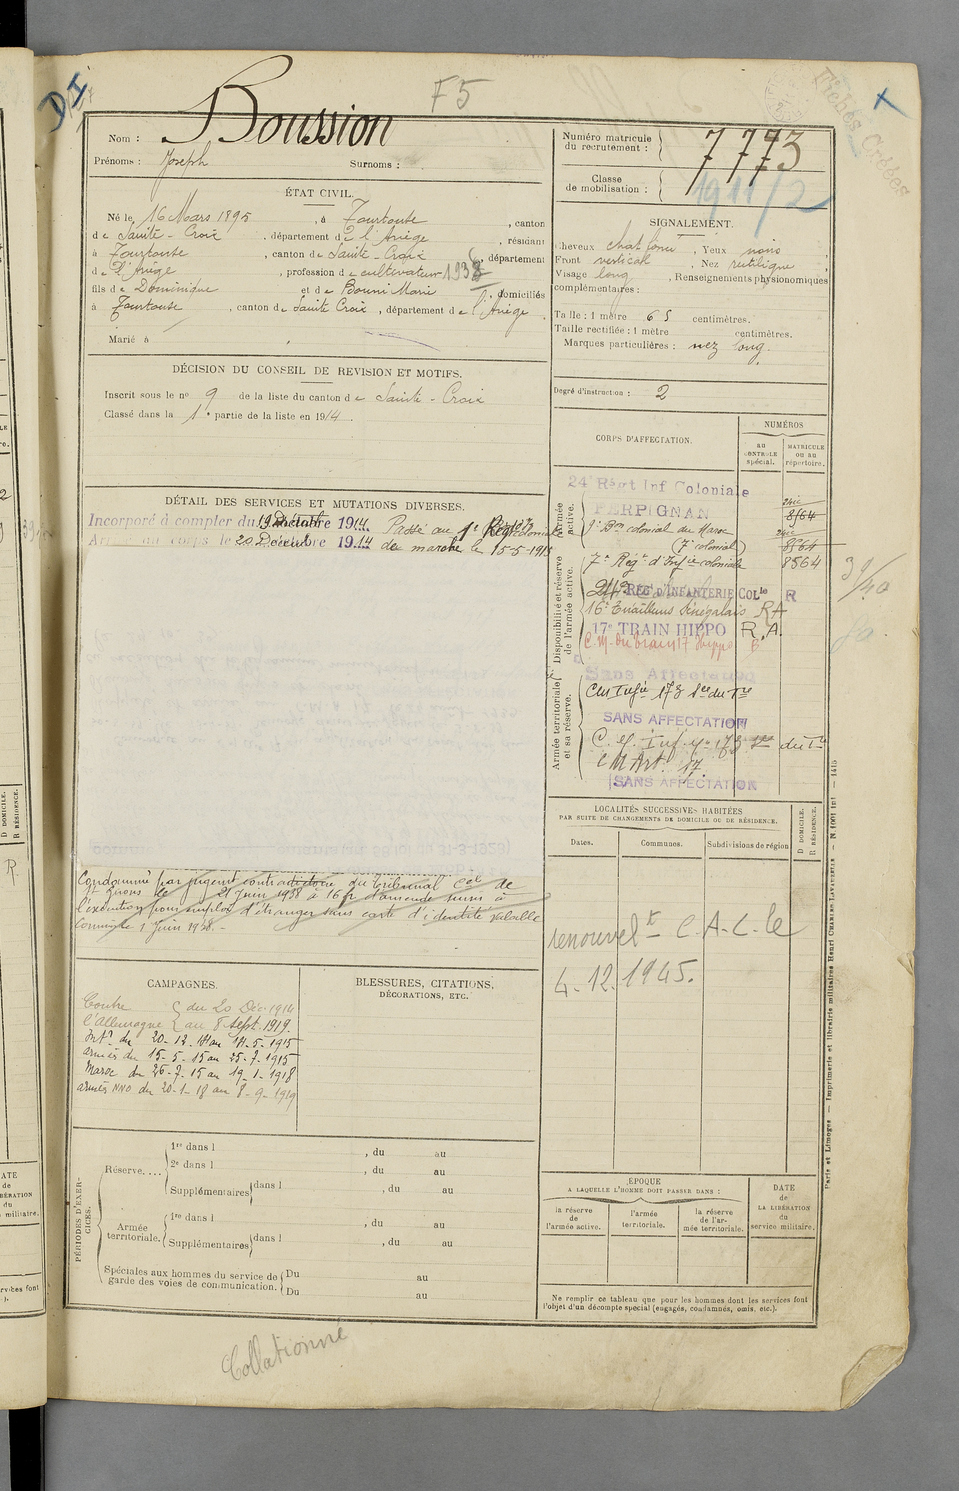 F5
Boussion
Nom :
Prénoms : Joseph Surnoms :
ÉTAT CIVIL.
Né le 16 Mars 1895, à Tourtouse, canton
de Sainte-Croix, département de l'Ariège, résidant
à Tourtouse, canton de Sainte-Croix, département
de l'Ariège, profession de cultivateur 1938
fils de Dominique et de Bouni Marie, domiciliés
à Tourtouse, canton de Sainte Croix, département de l'Ariège.
Marié à
DÉCISION DU CONSEIL DE REVISION ET MOTIFS.
Inscrit sous le no 9 de la liste du canton de Sainte-Croix
Classé dans la 1e partie de la liste en 1914.
DÉTAIL DES SERVICES ET MUTATIONS DIVERSES.
Incorporé à compter du 19 Décembre 1914. Passé au
Arrivé au corps le 20 Décembre 1914 de marche le 15-5-1915
Condamné par jugement contradictoire du tribunal Cel de
le 21 Juin 1938 à 16 fr d'amende sursis à
l'exécution pour emploi d'étranger sans carte d'identité valable
commis le 1 Juin 1938.-
CAMPAGNES.
Contre l'Allemagne { du 20 Déc. 1914
au 8 Sept. 1919.
Intr du 20-12-14 au 14-5-1915
armées du 15-5-15 au 25-7-1915
Maroc du 26-7-15 au 19-1-1918
armées NNO du 20-1-18 au 8-9-1919
BLESSURES, CITATIONS,
DÉCORATIONS, ETC.
PÉRIODES D'EXERCICES.
Réserve....
1re dans l , du au
2e dans l , du au
Supplémentaires dans l , du au
Armée territoriale.
1re dans l , du au
Supplémentaires dans l , du au
Spéciales aux hommes du service de garde des voies de communication.
Du au
Du au
Collationné
Numéro matricule du recrutement : 7773
Classe de mobilisation : 1911/2
SIGNALEMENT.
Cheveux chat foncé, Yeux noirs,
Front vertical, Nez rectiligne
Visage long, Renseignements physionomiques
complémentaires :
Taille : 1 mètre 65 centimètres.
Taille rectifiée : 1 mètre centimètres.
Marques particulières : nez long.
Degré d'instruction : 2
CORPS D'AFFECTATION.
NUMÉROS
au CONTROLE spécial.
MATRICULE ou au répertoire.
Armée active.
24e Régt Inf Coloniale
PERPIGNAN
8564
9e Bon colonial du Maroc
(7e colonial)
8564
7e Régt d'Infie coloniale 8564
Disponibilité et réserve de l'armée active.
24e REG D'INFANTERIE COLle R
16e Tirailleurs Sénégalais RA
17e TRAIN HIPPO R.A.
C. M. du train 17 Hippo
Armée territoriale et sa réserve.
Sans Affectation
Cen Infie 173
SANS AFFECTATION
C. M. Inf. no 173
C M Art. 17.
SANS AFFECTATION
39/40
LOCALITÉS SUCCESSIVES HABITÉES
PAR SUITE DE CHANGEMENTS DE DOMICILE OU DE RÉSIDENCE.
Dates. Communes. Subdivisions de région
D DOMICILE. R RÉSIDENCE.
renouvelt C.A.C. le
4.12.1945.
ÉPOQUE
A LAQUELLE L'HOMME DOIT PASSER DANS :
la réserve de l'armée active.
l'armée territoriale.
la réserve de l'armée territoriale.
DATE de LA LIBÉRATION du service militaire.
Ne remplir ce tableau que pour les hommes dont les services font
l'objet d'un décompte spécial (engagés, condamnés, omis, etc.).
Paris et Limoges — Imprimerie et librairie militaires Henri CHARLES-LAVAUZELLE